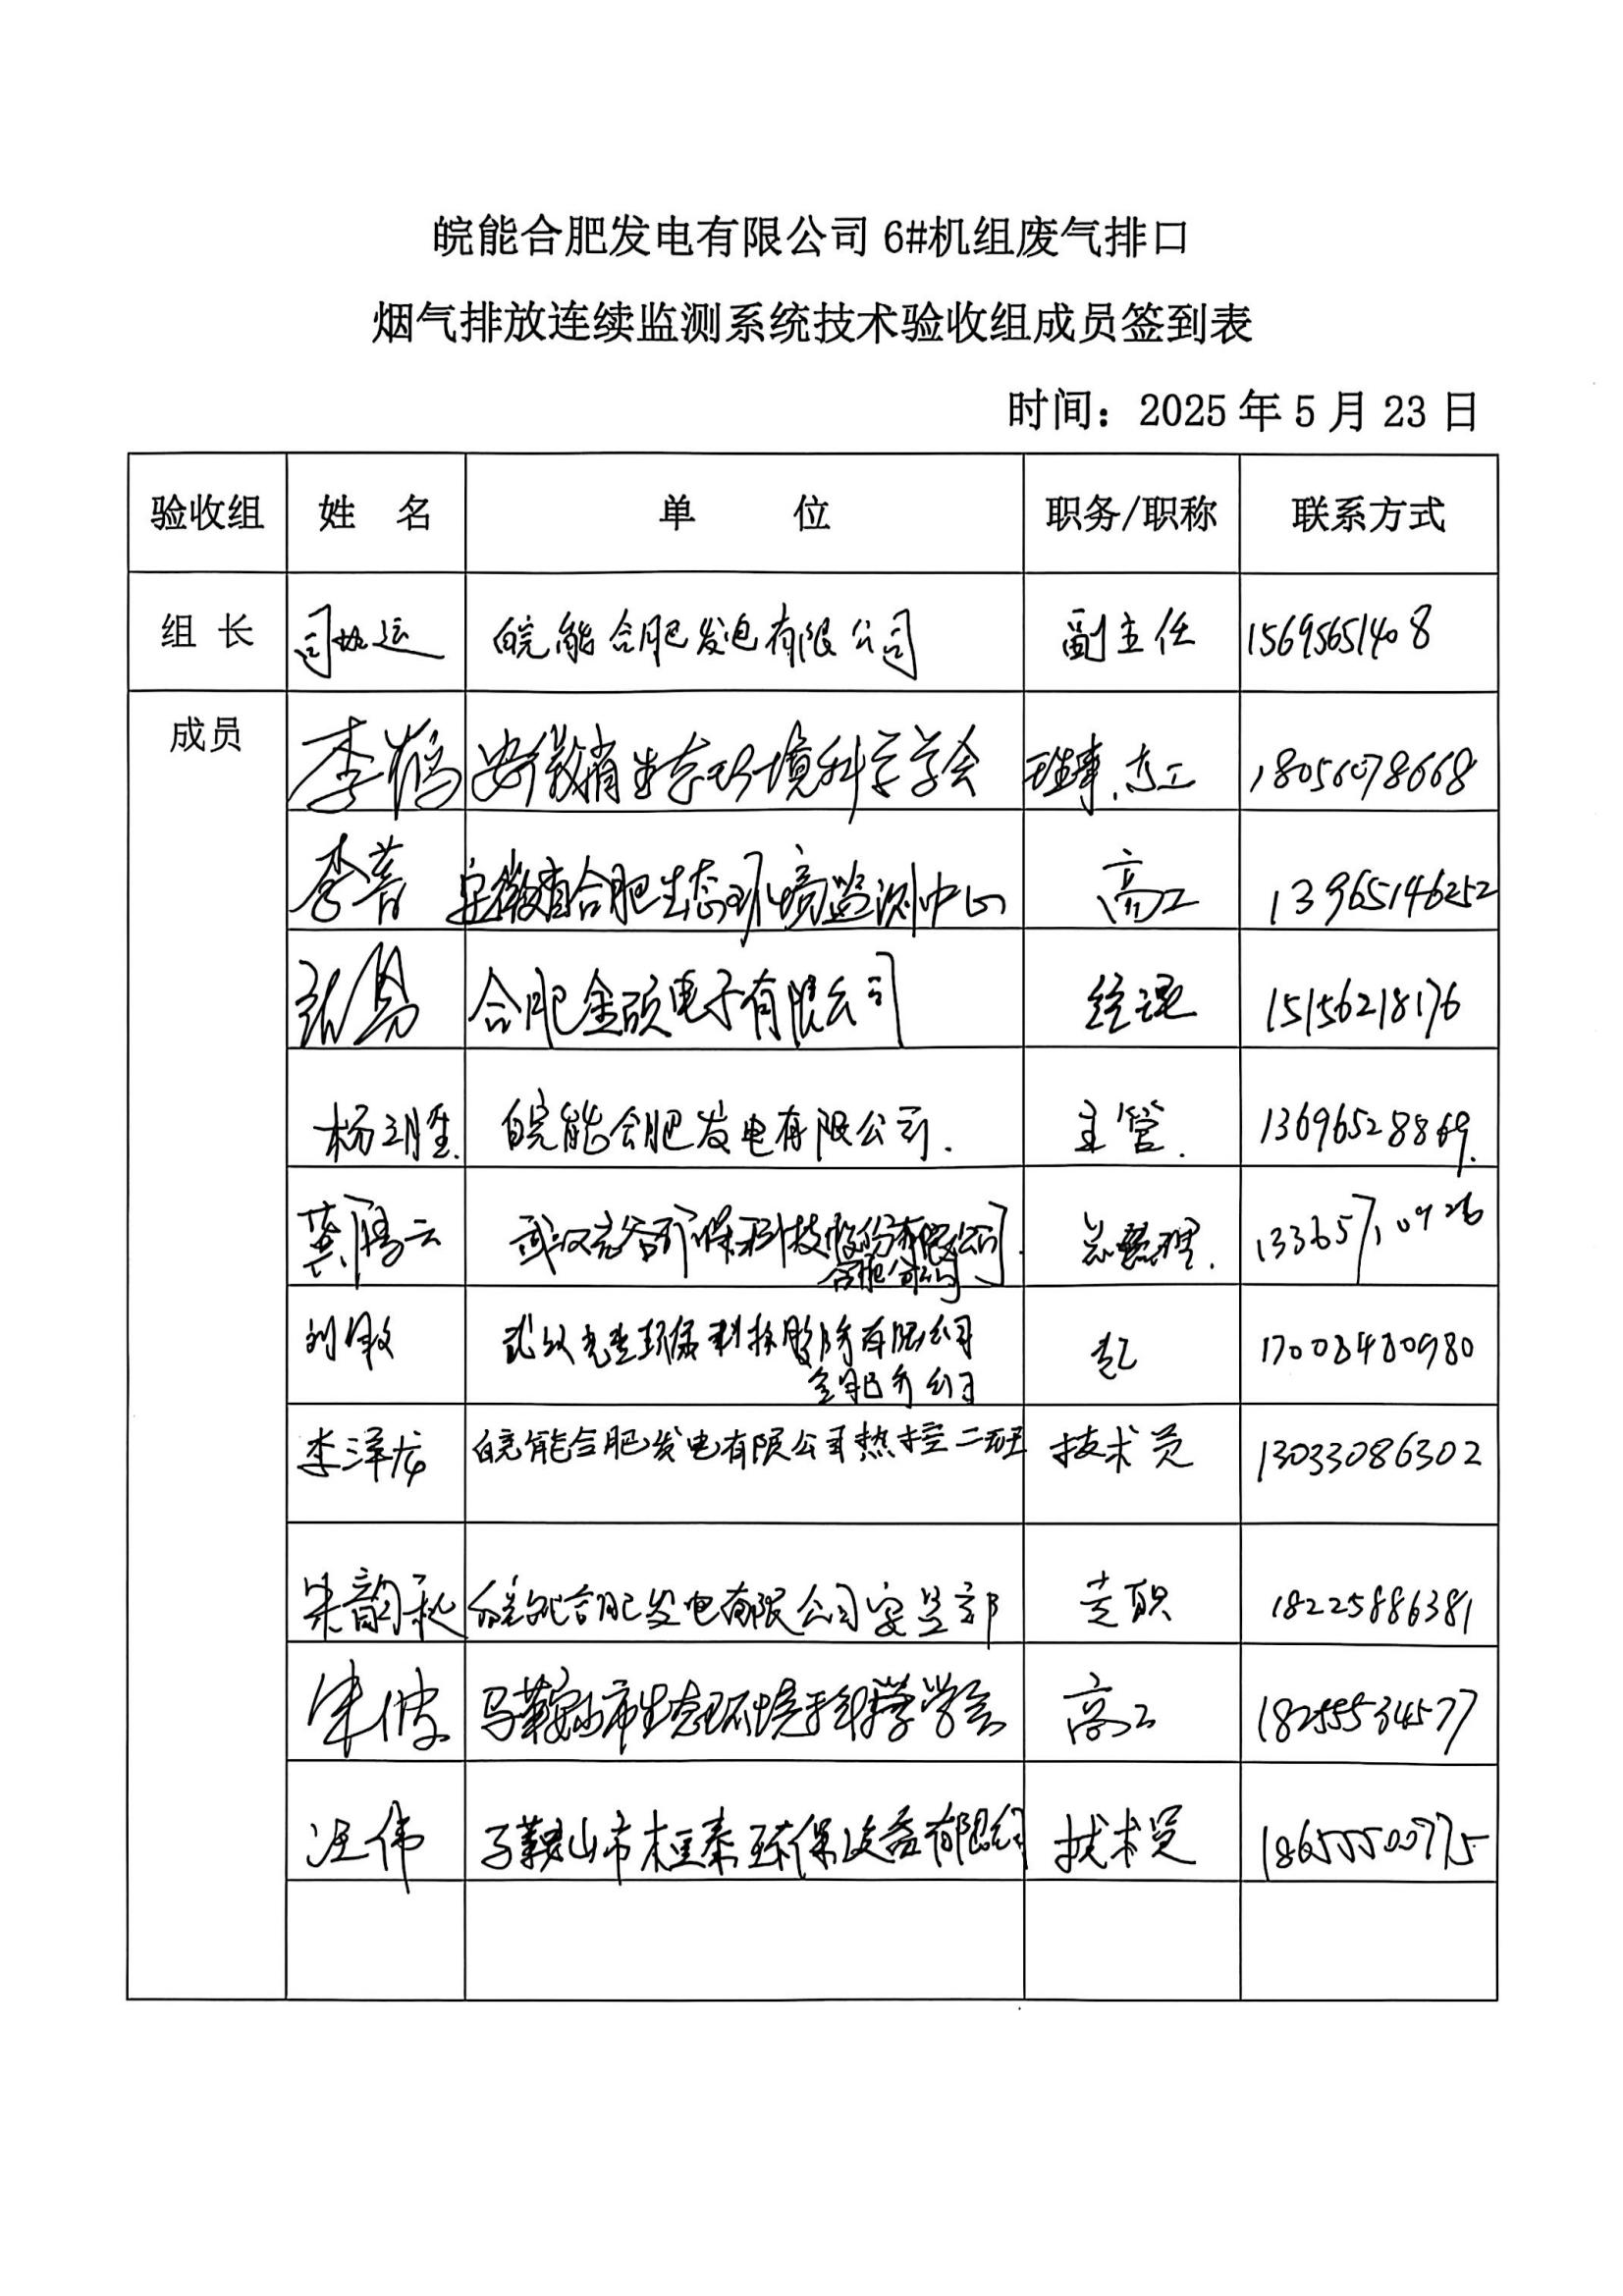 皖能合肥发电有限公司 6#机组废气排口
烟气排放连续监测系统技术验收组成员签到表
时间：2025 年 5 月 23 日
验收组 姓 名 单 位 职务/职称 联系方式
组 长 司 运 皖能合肥发电有限公司 副主任 15695651408
成员 李鹤 安徽省生态环境科学学会 理事、高工 18056078668
李菁 安徽省合肥生态环境监测中心 高工 13965146252
张勇 合肥金硕电子有限公司 经理 15156218176
杨明 皖能合肥发电有限公司. 主管. 13696528869.
龚腾云 武汉天谷环保科技股份有限公司 总经理.
合肥分公司
刘敏 武汉 环保科技股份有限公司 17008480980
合肥分公司
李泽龙 皖能合肥发电有限公司热控二班 技术员 13033086302
朱韵秋 皖能合肥发电有限公司安监部 专职 18225886381
朱 马鞍山市生态环境科学学会 高工 18255534577
汪伟 马鞍山市桓泰环保设备有限公司 技术员 18655500775